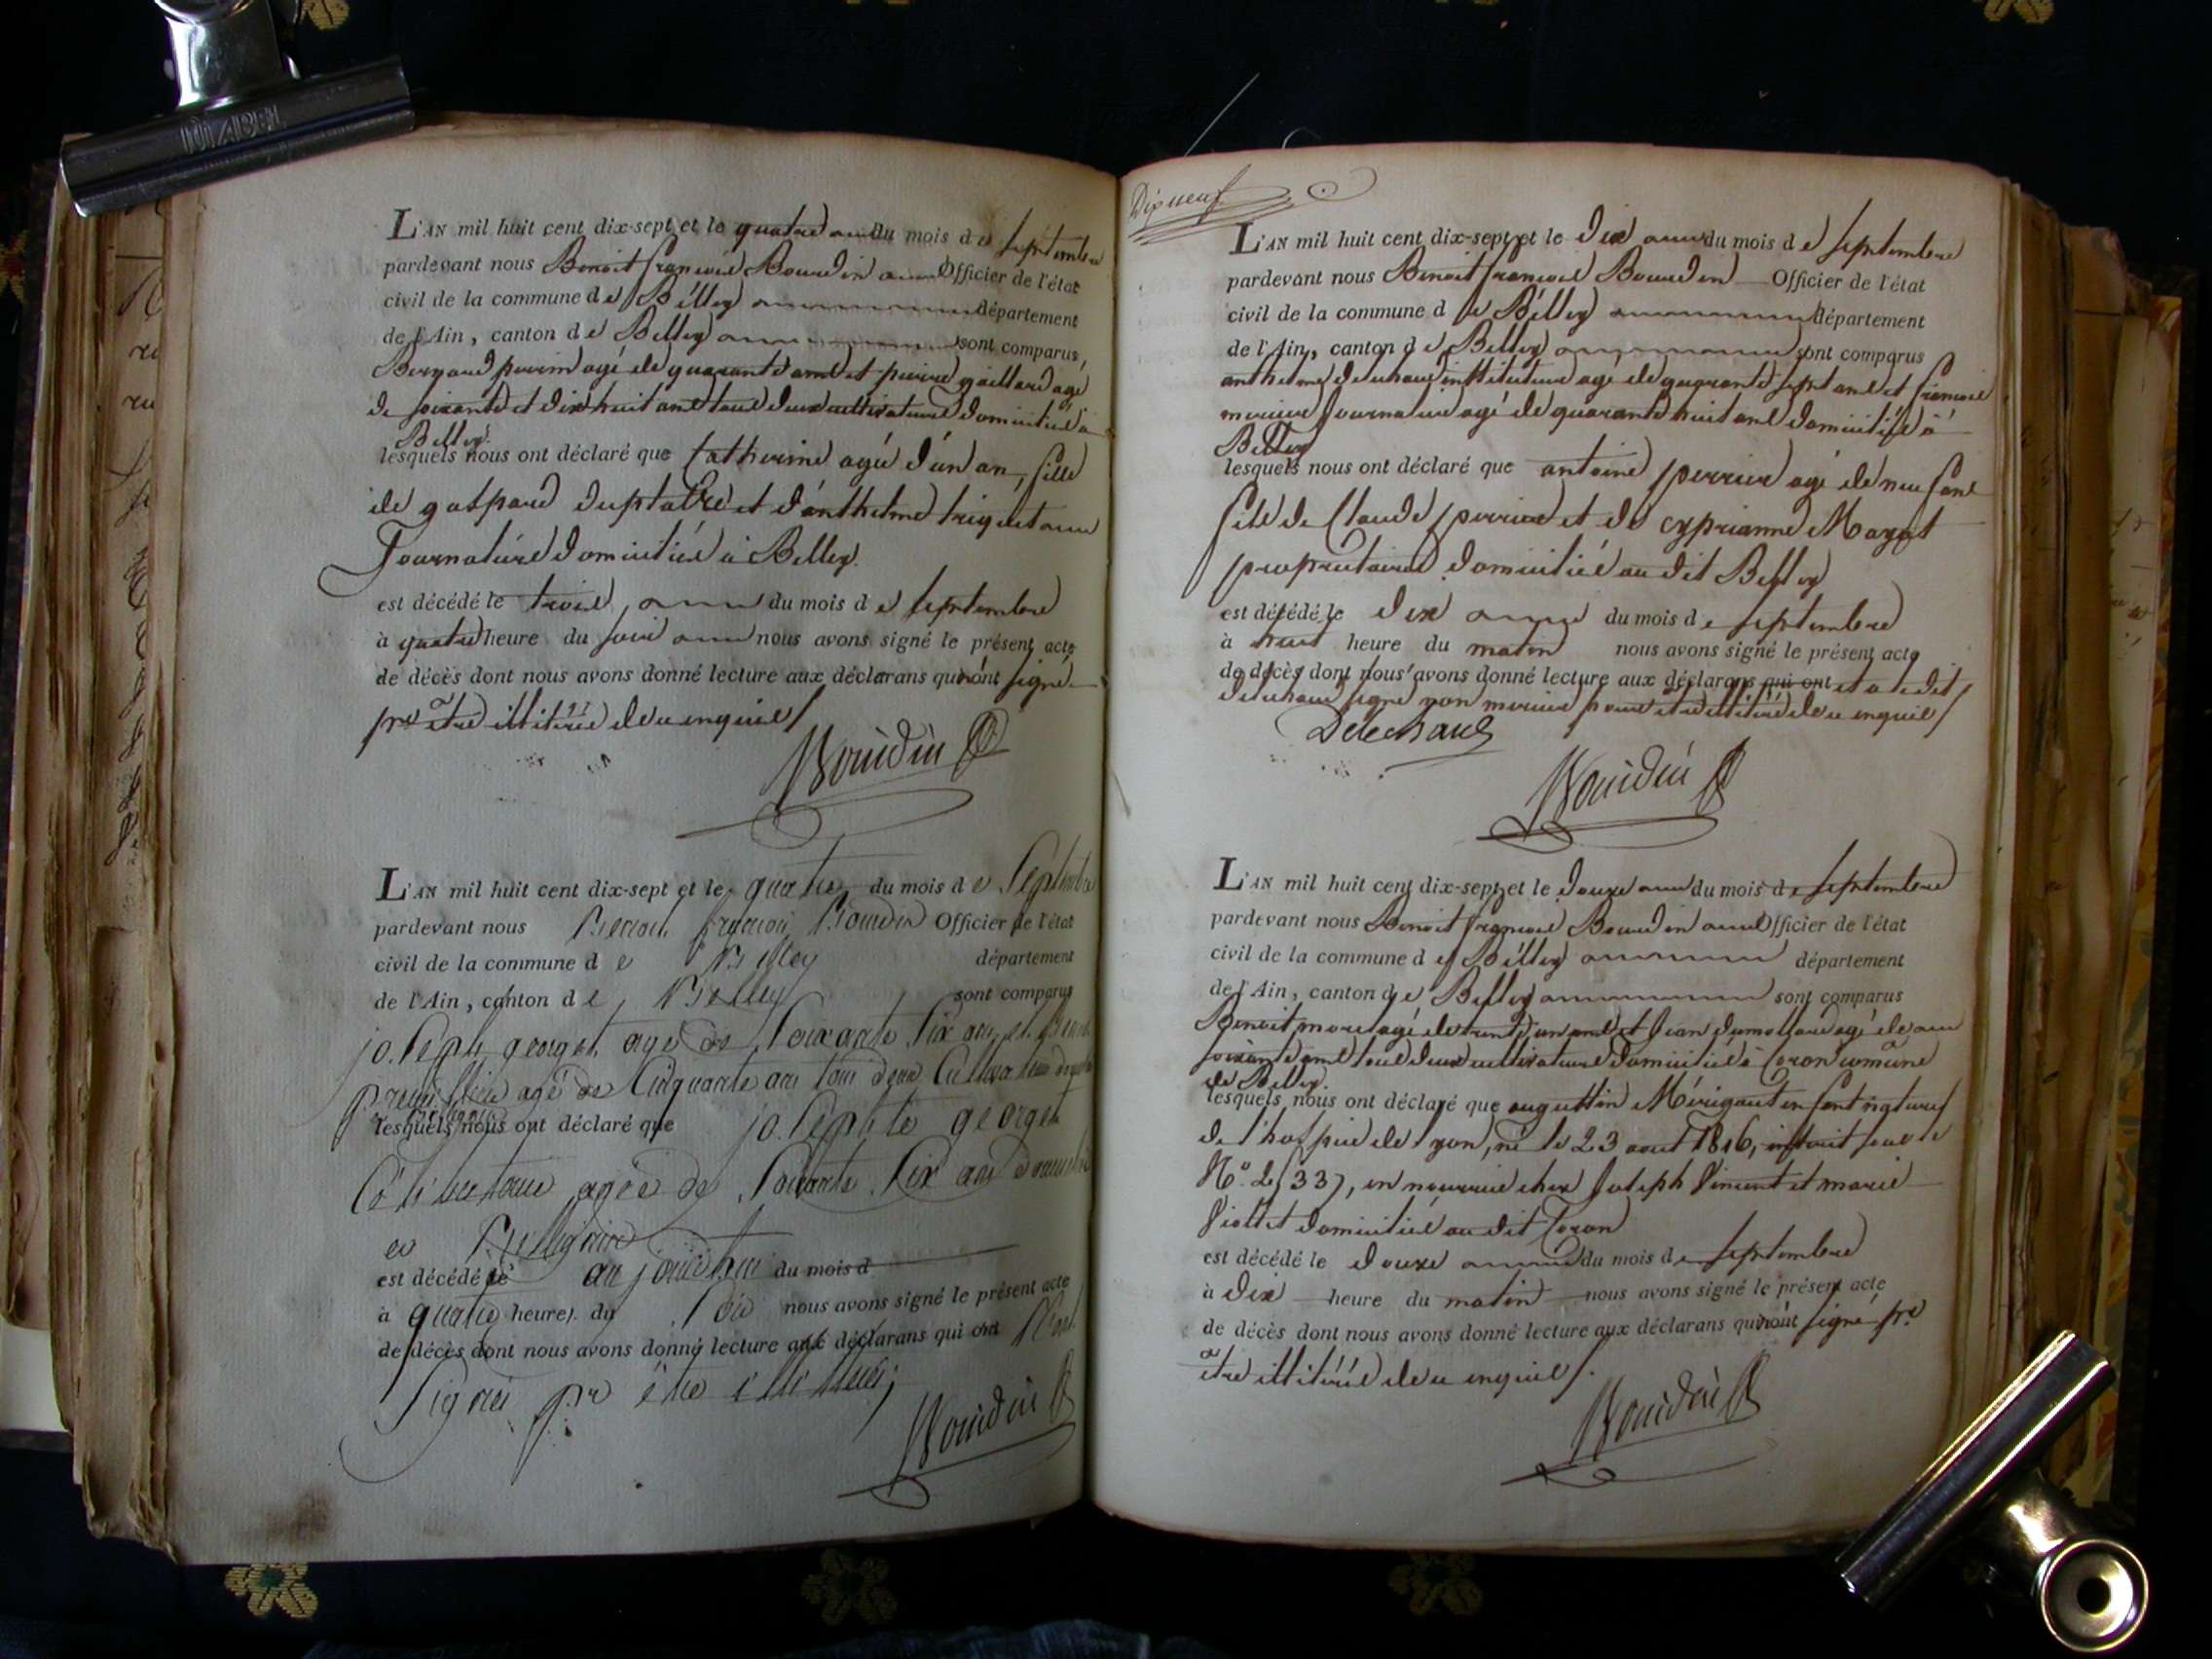 L'AN mil huit cent dix-sept et le quatre du mois de septembre
pardevant nous Benoit françois Bourdin Officier de l'état
civil de la commune de Bélley département
de l'Ain, canton de Belley sont comparus,
Bernard perrin agé de quarante ans et pierre gaillard agé
de soixante et dix huit ans tous deux cultivateurs domiciliés à
Belley.
lesquels nous ont déclaré que Catherine agée d'un an, fille
de gaspard duplatre et d'anthelme triquet
Journaliers domiciliés à Belley.
est décédé le trois du mois de septembre
à quatre heure du soir nous avons signé le présent acte
de décès dont nous avons donné lecture aux déclarans qui n'ont signé
pr être illitérés de ce enquis /
Bourdin
L'AN mil huit cent dix-sept et le quatre du mois de Septembre
pardevant nous Benoit françois Bourdin Officier de l'état
civil de la commune de Belley département
de l'Ain, canton de Belley sont comparus
joseph georget agé de Soixante Six ans et
agé de Cinquante ans tous deux Cultivateurs
lesquels nous ont déclaré que josephte georget
Célibataire agée de Soixante Six ans
est décédé le aujourdhui du mois d
à quatre heures du Soir nous avons signé le présent acte
de décès dont nous avons donné lecture aux déclarans qui ont N'ont
Signés pr être illitérés;
Bourdin
Dix neuf
L'AN mil huit cent dix-sept et le dix du mois de septembre
pardevant nous Benoit françois Bourdin Officier de l'état
civil de la commune de Bélley département
de l'Ain, canton de Belley sont comparus
anthelme deléchaud instituteur agé de quarante sept ans et françois
mercier Journalier agé de quarante huit ans domiciliés à
Belley
lesquels nous ont déclaré que antoine perrier agé de neuf ans
fils de Claude perrier et de cyprianne Mayot
propriétaires domiciliés au dit Belley
est décédé le dix du mois de septembre
à huit heure du matin nous avons signé le présent acte
de décès dont nous avons donné lecture aux déclarans qui ont et a le dit
deléchaud signé non mercier pour être illitéré de ce enquis /
Delechaud
Bourdin
L'AN mil huit cent dix-sept et le douze du mois de septembre
pardevant nous Benoit françois Bourdin Officier de l'état
civil de la commune de Bélley département
de l'Ain, canton de Belley sont comparus
Benoit more agé de trente un ans et Jean dumollard agé de
soixante ans tous deux cultivateurs domiciliés à Coron comune
de Belley.
lesquels nous ont déclaré que augustin Mérigant enfant naturel
de l'hospice de lyon, né le 23 aout 1816, inscrit sous le
N°. 2,337, en nourrice chez Joseph Vincent et marie
Viollet domiciliés au dit Coron
est décédé le douze du mois de septembre
à dix heure du matin nous avons signé le présent acte
de décès dont nous avons donné lecture aux déclarans qui n'ont signé pr.
être illitérés de ce enquis /.
Bourdin